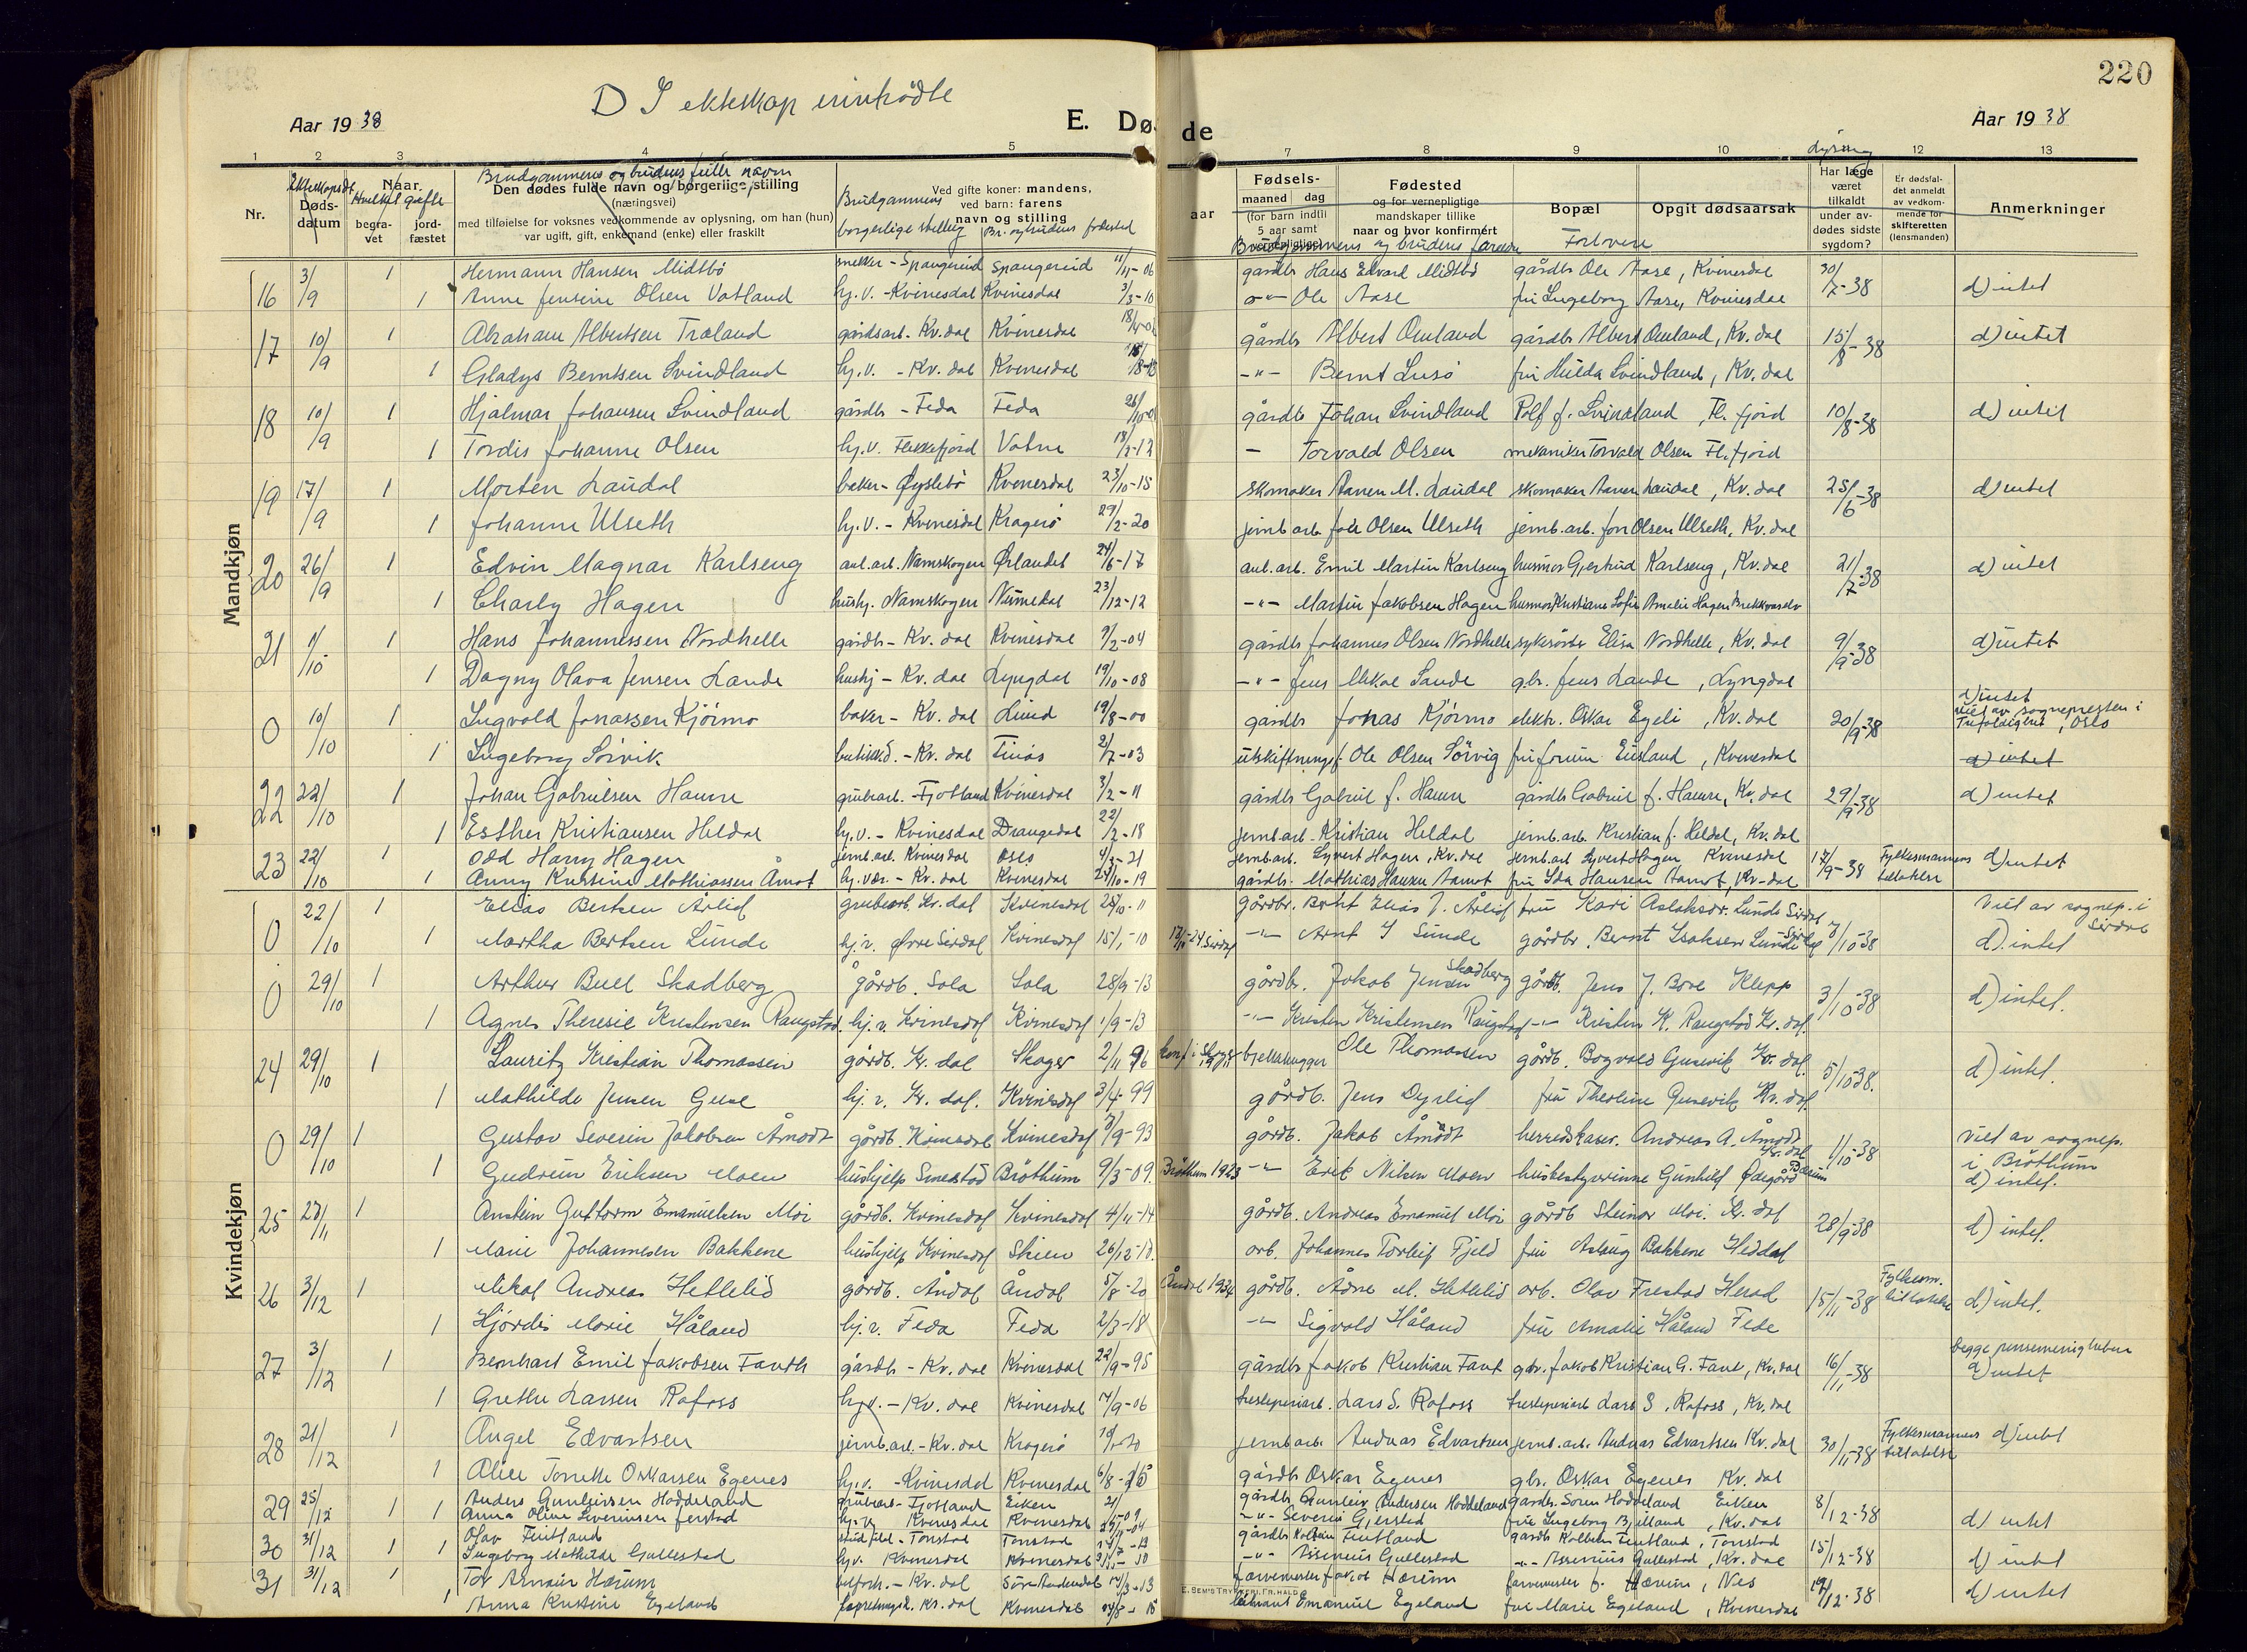 220
D I ekteskap inntrådte
Aar 1938
E. Døde
Aar 1938
1 2 3 4 5 7 8 9 10 lysning 12 13
Brudgommens og brudens fulle navn
Nr.
Døds-datum
Naar
begra-vet
jord-fæstet
Den dødes fulde navn og borgerlige stilling
(næringsvei)
med tilføielse for voksnes vedkommende av oplysning, om han (hun)
var ugift, gift, enkemand (enke) eller fraskilt
Ved gifte koner: mandens,
ved barn: farens
navn og stilling
Brudgommens borgerlige stilling
Br. og brudens fødested
aar
Fødsels-
maaned dag
(for barn indtil 5 aar samt
Fødested
og for vernepligtige
mandskaper tillike
naar og hvor konfirmert
Brudgommens og brudens farsnavn
Bopæl
Opgit dødsaarsak
Forlovere
Har læge været tilkaldt under av-dødes sidste sygdom?
Er dødsfal-det anmeldt av vedkom-mende for skifteretten (lensmanden)
Anmerkninger
Mandkjøn
16 3/9 1 Hermann Hansen Midtbø snekker - Spangereid Spangereid 11/11-06 gårdbr Hans Edvard Midtbø gårdbr Ole Aase, Kvinesdal 30/7-38 d) intet
1 Anne Jensine Olsen Vatland hj.v. - Kvinesdal Kvinesdal 3/3-10 -"- Ole Aase fru Ingeborg Aase, Kvinesdal
17 10/9 1 Abraham Albertsen Træland gårdsarb. Kv.dal Kvinesdal gårdbr Albert Omland gårdbr Albert Omland, Kv. dal 15/8-38 d) intet
1 Gladys Berntsen Svindland hj.v. - Kv. dal Kvinesdal -"- Bernt Lusø fru Hulda Svindland, Kv. dal
18 10/9 1 Hjalmar Johansen Svindland gårdbr - Feda Feda gårdb Johan Svindland Rolf J. Svindland, Fl. fjord 10/8-38 d) intet
1 Tordis Johanne Olsen hj.v. Flekkefjord Vatne 18/2-12 - Torvald Olsen mekaniker Torvald Olsen Fl. fjord
19 17/9 1 Morten Laudal baker - Øyslebø Kvinesdal 23/10-15 skomaker Aanen M. Laudal skomaker Aanen Laudal, Kv. dal 25/6-38 d) intet
1 Johanne Ulseth hj.v. - Kvinesdal Kragerø 29/2-20 jernb arb. Joh Olsen Ulseth jernb.arb. Jon Olsen Ulseth, Kv. dal
20 26/9 1 Edvin Magnar Karlseng anl.arb. Namskogen Ørlandet 24/6-17 anl.arb. Emil Martin Karlseng husmor Gjertrud Karlseng, Kv. dal 21/7-38 d) intet
1 Charly Hagen hushj. Namskogen 23/12-12 -"- Martin Jakobsen Hagen husmor Kristiane Sofie Amalie Hagen Brekkvasselv
21 1/10 1 Hans Johannessen Nordhelle gårdbr - Kv. dal Kvinesdal 9/2-04 gårdbr Johannes Olsen Nordhelle sykesøster Elisa Nordhelle, Kv. dal 9/9-38 d) intet
1 Dagny Olava Jensen Lande hushj - Kv. dal Lyngdal 19/10-08 -"- Jens Mikal Lande gbr. Jens Lande, Lyngdal
0 10/10 1 Ingvald Jonassen Kjørmo baker - Kv. dal Lund 19/8-00 gårdbr Jonas Kjørmo elektr. Oskar Egeli, Kv. dal 20/9-38 d) intet viet av sognepresten i Trefoldighet, Oslo
1 Ingeborg Sørvik butikkd. - Kv. dal Tinås 2/7-03 utskiftningsf. Ole Olsen Sørvig fru Eisland, Kvinesdal d) intet
22 22/10 1 Johan Gabrielsen Hamre grubearb. - Fjotland Kvinesdal 3/2-11 gårdbr Gabriel J. Hamre gårdbr Gabriel J. Hamre, Kv. dal 29/9-38 d) intet
1 Esther Kristiansen Heldal hj.v. - Kvinesdal Drangedal 22/2-18 jernb.arb. Kristian Heldal jernb.arb. Kristian J. Heldal, Kv. dal
23 22/10 1 Odd Harry Hagen jernb.arb. Kvinesdal Oslo 4/3-21 jernb.arb. Syvert Hagen, Kv. dal jernb.arb Syvert Hagen Kvinesdal 17/9-38 Fylkesmannens tillatelse d) intet
1 Anny Kristine Mathiassen Åmot hj.vær. - Kv. dal Kvinesdal 28/10-19 gårdbr. Mathias Hansen Aamot fru Ida Hansen Aamot, Kv. dal
Kvindekjøn
0 22/10 1 Elias Bertsen Årlid grubearb. Kv. dal Kvinesdal 28/10-11 gårdbr. Bernt Elias J. Årlid fru Kari Aslaksdr. Lunde Sirdal 7/10-38 Viet av sognep. i Sirdal
1 Martha Bertsen Lunde hj.v. Øvre Sirdal Kvinesdal 15/1-10 -"- Arnt I Lunde gårdbr. Bernt Isaksen Lunde Sirdal d). intet
0 29/10 1 Arthur Buel Skadberg gårdb. Sola Sola 28/9-13 gårdbr. Jakob Jensen Skadberg gårdb. Jens J. Bore Klepp 3/10-38 d) intet.
1 Agnes Theresie Kristensen Raugstad hj.v. Kvinesdal Kvinesdal 1/9-13 -"- Kristen Kristensen Raugstad -"- Kristen K. Raugstad Kv. dal
24 29/10 1 Lauritz Kristian Thomassen gårdb. Kv. dal Skoger 2/11 96 Ole Thomassen gårdb. Bogvald Gusevik Kv. dal. 5/10-38. d) intet.
1 Mathilde Jensen Guse hj.v. Kv. dal. Kvinesdal 3/4-99 gårdb. Jens Dyrlid fru Theoline Gusevik Kv. dal
0 29/10 1 Gustav Severin Jakobsen Åmodt gårdb. Kvinesdal Kvinesdal 8/9-93 gårdb. Jakob Åmodt herredskaser. Andreas A. Åmodt Kv. dal 11/10-38 Viet av sognep. i Brøttum
1 Gudrun Eriksen Moen hushjelp Smestad Brøttum 9/3-09. Brøttum 1923 -"- Erik Nilsen Moen husbestyrerinne Gunhild Ødegård Bærum d) intet.
25 23/11 1 Anstein Guttorm Emanuelsen Moi gårdb. Kvinesdal Kvinesdal 4/11-14 gårdb. Andreas Emanuel Moi gårdb Steinar Moi. Kv. dal 28/9-38 d) intet.
1 Marie Johannesen Bakkene hushjelp Kvinesdal Skien 26/12-18. arb. Johannes Torleif Fjeld fru Aslaug Bakkene Heddal
26 3/12 1 Mikal Andreas Hettelid gårdb. Åndal Åndal 5/8-20 Åndal 1934 gårdb. Ådne M. Hettelid arb. Olav Frestad Herad 15/11-38 Fylkesm. tillatelse d) intet.
1 Hjørdis Marie Håland hj.v. Feda Feda 2/3-18 -"- Sigvald Håland fru Amalie Håland Feda
27 3/12 1 Bernhart Emil Jakobsen Fandt gårdbr - Kv. dal Kvinesdal 22/9-95 gårdbr Jakob Kristian Fant gbr. Jakob Kristian G. Fant, Kv. dal 16/11-38 begge pinsemenigheten d) intet
1 Grethe Larsen Rafoss hj.v. - Kv. dal Kvinesdal 14/9-06 tresliperiarb. Lars S. Rafoss tresliperiarb Lars S. Rafoss, Kv. dal
28 21/12 1 Angel Edvartsen jernb.arb. - Kv. dal Kragerø jernb.arb. Andreas Edvartsen jernb.arb. Andreas Edvartsen Kv. dal 30/11-38 Fylkesmannens tillatelse d) intet
1 Alice Tomette Oskarsen Egenes hj.v. - Kvinesdal Kvinesdal gårdbr Oskar Egenes gbr. Oskar Egenes Kv. dal
29 25/12 1 Anders Gunleivsen Hoddeland grubearb - Fjotland Eiken gårdbr Gunleiv Andersen Hoddeland gårdbr. Søren Hoddeland Eiken 8/12-38 d) intet
1 Anna Oline Severinsen Jerstad hj.v. Kvinesdal Kvinesdal -"- Severin Gjerstad fru Ingeborg Bjelland, Kv. dal
30 31/12 1 Olav Fintland - Tonstad Tonstad gårdbr Kolbein Fintland gårdb Kolbein Fintland, Tonstad 15/12-38 d) intet
1 Ingeborg Mathilde Gullestad hj.v. Kvinesdal Kvinesdal -"- Assenius Gullestad -"- Assenius Gullestad, Kv. dal
31 31/12 1 Tor Arnair Hærum - Kv. dal Søre Audnedal 14/3-13 farvemester Jakob Hærum farvemester J. Hærum, Nes 19/12-38 d) intet
1 Anna Kristine Egeland Kv. dal Kvinesdal Emanuel Egeland fru Marie Egeland, Kvinesdal
E. SEM'S TRYKKERI, FR.HALD